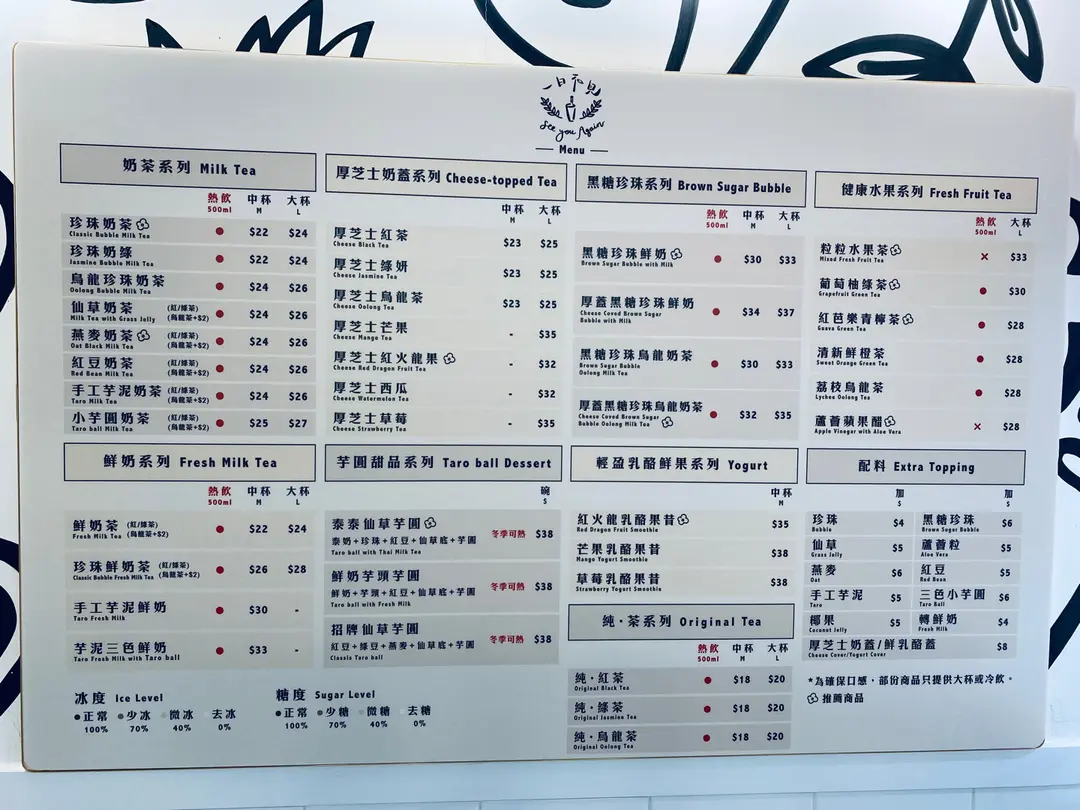 一日不見
See you Again
Menu
奶茶系列 Milk Tea
熱飲 中杯 大杯
500ml M L
珍珠奶茶 $22 $24
Classic Bubble Milk Tea
珍珠奶綠 $22 $24
Jasmine Bubble Milk Tea
烏龍珍珠奶茶 $24 $26
Oolong Bubble Milk Tea
仙草奶茶 (紅/綠茶) $24 $26
Milk Tea with Grass Jelly (烏龍茶+$2)
燕麥奶茶 (紅/綠茶) $24 $26
Oat Black Milk Tea (烏龍茶+$2)
紅豆奶茶 (紅/綠茶) $24 $26
Red Bean Milk Tea (烏龍茶+$2)
手工芋泥奶茶 (紅/綠茶) $24 $26
Taro Milk Tea (烏龍茶+$2)
小芋圓奶茶 (紅/綠茶) $25 $27
Taro ball Milk Tea (烏龍茶+$2)
厚芝士奶蓋系列 Cheese-topped Tea
中杯 大杯
M L
厚芝士紅茶 $23 $25
Cheese Black Tea
厚芝士綠妍 $23 $25
Cheese Jasmine Tea
厚芝士烏龍茶 $23 $25
Cheese Oolong Tea
厚芝士芒果 - $35
Cheese Mango Tea
厚芝士紅火龍果 - $32
Cheese Red Dragon Fruit Tea
厚芝士西瓜 - $32
Cheese Watermelon Tea
厚芝士草莓 - $35
Cheese Strawberry Tea
黑糖珍珠系列 Brown Sugar Bubble
熱飲 中杯 大杯
500ml M L
黑糖珍珠鮮奶 $30 $33
Brown Sugar Bubble with Milk
厚蓋黑糖珍珠鮮奶 $34 $37
Cheese Coved Brown Sugar
Bubble with Milk
黑糖珍珠烏龍奶茶 $30 $33
Brown Sugar Bubble
Oolong Milk Tea
厚蓋黑糖珍珠烏龍奶茶 $32 $35
Cheese Coved Brown Sugar
Bubble Oolong Milk Tea
健康水果系列 Fresh Fruit Tea
熱飲 大杯
500ml L
粒粒水果茶 × $33
Mixed Fresh Fruit Tea
葡萄柚綠茶 $30
Grapefruit Green Tea
紅芭樂青檸茶 $28
Guava Green Tea
清新鮮橙茶 $28
Sweet Orange Green Tea
荔枝烏龍茶 $28
Lychee Oolong Tea
蘆薈蘋果醋 × $28
Apple Vinegar with Aloe Vera
鮮奶系列 Fresh Milk Tea
熱飲 中杯 大杯
500ml M L
鮮奶茶 (紅/綠茶) $22 $24
Fresh Milk Tea (烏龍茶+$2)
珍珠鮮奶茶 (紅/綠茶) $26 $28
Classic Bubble Fresh Milk Tea (烏龍茶+$2)
手工芋泥鮮奶 $30 -
Taro Fresh Milk
芋泥三色鮮奶 $33 -
Taro Fresh Milk with Taro ball
冰度 Ice Level
正常 少冰 微冰 去冰
100% 70% 40% 0%
糖度 Sugar Level
正常 少糖 微糖 去糖
100% 70% 40% 0%
芋圓甜品系列 Taro ball Dessert
碗
$
泰泰仙草芋圓
泰奶+珍珠+紅豆+仙草底+芋圓 冬季可熱 $38
Taro ball with Thai Milk Tea
鮮奶芋頭芋圓
鮮奶+芋頭+紅豆+仙草底+芋圓 冬季可熱 $38
Taro ball with Fresh Milk
招牌仙草芋圓
紅豆+綠豆+燕麥+仙草底+芋圓 冬季可熱 $38
Classis Taro ball
輕盈乳酪鮮果系列 Yogurt
中杯
M
紅火龍乳酪果昔 $35
Red Dragon Fruit Smoothie
芒果乳酪果昔 $38
Mango Yogurt Smoothie
草莓乳酪果昔 $38
Strawberry Yogurt Smoothie
純·茶系列 Original Tea
熱飲 中杯 大杯
500ml M L
純·紅茶 $18 $20
Original Black Tea
純·綠茶 $18 $20
Original Jasmine Tea
純·烏龍茶 $18 $20
Original Oolong Tea
配料 Extra Topping
加 加
$ $
珍珠 $4 黑糖珍珠 $6
Bubble Brown Sugar Bubble
仙草 $5 蘆薈粒 $5
Grass Jelly Aloe Vera
燕麥 $6 紅豆 $5
Oat Red Bean
手工芋泥 $5 三色小芋圓 $6
Taro Taro Ball
椰果 $5 轉鮮奶 $4
Coconut Jelly Fresh Milk
厚芝士奶蓋/鮮乳酪蓋 $8
Cheese Cover/Yogurt Cover
*為確保口感，部份商品只提供大杯或冷飲。
推薦商品